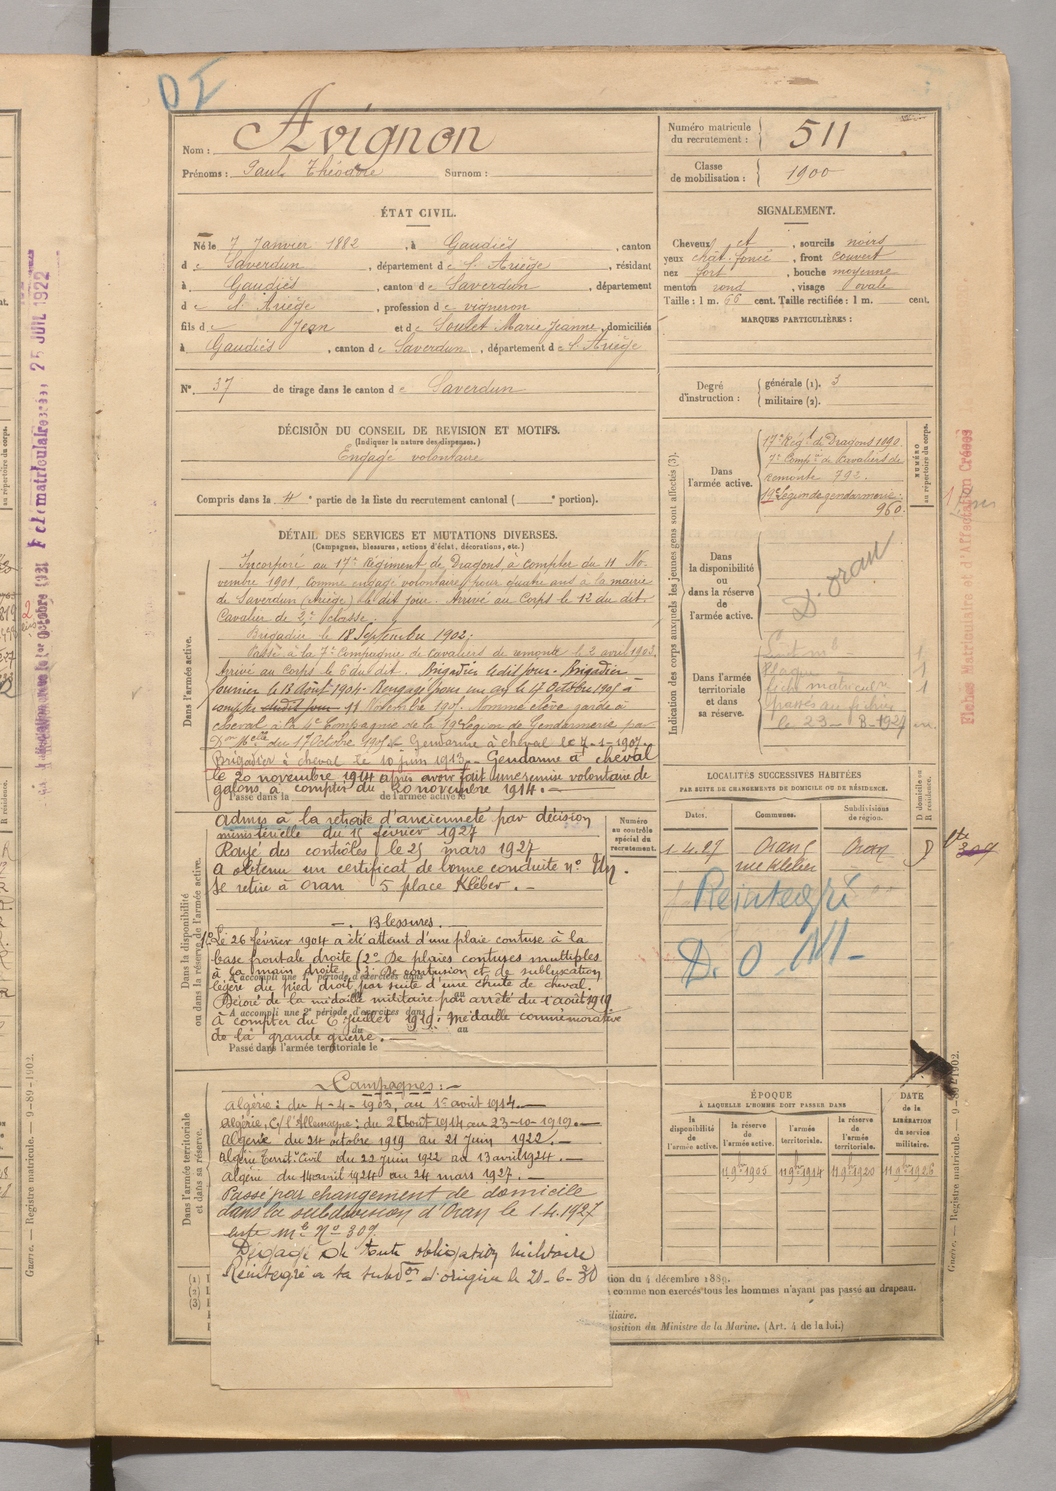 D I
Nom : Avignon
Prénoms : Paul Théodore Surnom :
Numéro matricule du recrutement : 511
Classe de mobilisation : 1900
ÉTAT CIVIL.
Né le 7 Janvier 1882, à Gaudiès, canton
de Saverdun, département de l'Ariège, résidant
à Gaudiès, canton de Saverdun, département
de l'Ariège, profession de vigneron
fils de Jean et de Soulet Marie Jeanne, domiciliés
à Gaudiès, canton de Saverdun, département de l'Ariège
N°. 37 de tirage dans le canton de Saverdun
SIGNALEMENT.
Cheveux et, sourcils noirs
yeux chât. foncé, front couvert
nez fort, bouche moyenne
menton rond, visage ovale
Taille : 1 m. 66 cent. Taille rectifiée : 1 m. cent.
MARQUES PARTICULIÈRES :
Degré d'instruction : générale (1). 3
militaire (2).
DÉCISION DU CONSEIL DE REVISION ET MOTIFS.
(Indiquer la nature des dispenses.)
Engagé volontaire
Compris dans la 4e partie de la liste du recrutement cantonal ( e portion).
DÉTAIL DES SERVICES ET MUTATIONS DIVERSES.
(Campagnes, blessures, actions d'éclat, décorations, etc.)
Dans l'armée active.
Incorporé au 17e Régiment de Dragons à compter du 11 No-
vembre 1901, comme engagé volontaire pour quatre ans à la mairie
de Saverdun (Ariège) le dit jour. Arrivé au Corps le 12 du dit
Cavalier de 2e Classe.
Brigadier le 18 Septembre 1902.
Passé à la 7e Compagnie de cavaliers de remonte le 2 avril 1903.
Arrivé au Corps le 6 du dit. Brigadier le dit jour. Brigadier
fourrier le 13 Août 1904. Rengagé pour un an le 4 Octobre 1905 à
compter 11 Novembre 1905. Nommé élève garde à
cheval à la 4e Compagnie de la 19e Légion de Gendarmerie par
Don Melle du 17 Octobre 1905. Gendarme à cheval le 7-1-1907.
Brigadier à cheval le 10 juin 1913. Gendarme à cheval
le 20 novembre 1914 après avoir fait une remise volontaire de
galons, à compter du 20 novembre 1914.
Passé dans la de l'armée active le
Dans la disponibilité
ou dans la réserve de l'armée active.
Admis à la retraite d'ancienneté par décision
ministérielle du 15 février 1927
Rayé des contrôles le 25 mars 1927
A obtenu un certificat de bonne conduite n° Un.
Se retire à Oran 5 place Kléber.
Blessures.
1° Le 26 février 1904 a été atteint d'une plaie contuse à la
base frontale droite (2° De plaies contuses multiples
à la main droite, 3° De contusion et de subluxation
légère du pied droit par suite d'une chute de cheval.
Décoré de la médaille militaire par arrêté du 1 août 1919
à compter du 6 juillet 1919. médaille commémorative
de la grande guerre.
Passé dans l'armée territoriale le
Numéro au contrôle spécial du recrutement.
Dans l'armée territoriale
et dans sa réserve.
Campagnes :
Algérie : du 4-4-1903, au 1er août 1914.
Algérie, C/ l'Allemagne : du 2 août 1914 au 23-10-1919.
Algérie du 24 octobre 1919 au 21 juin 1922.
Algérie Territ. Civil du 22 juin 1922 au 13 avril 1924.
Algérie du 14 avril 1924 au 24 mars 1927.
Passé par changement de domicile
dans la subdivision d'Oran le 1.4.1927
liste Mle N° 309
Dégagé de toute obligation militaire
Réintégré à sa subdon d'origine le 20-6-30
Indication des corps auxquels les jeunes gens sont affectés (3).
Dans l'armée active.
17e Régt de Dragons 1090.
7e Compie de Cavaliers de
remonte 792.
19e Légion de gendarmerie.
960
NUMÉRO au répertoire du corps.
Dans la disponibilité ou dans la réserve de l'armée active.
D. Oran
Dans l'armée territoriale et dans sa réserve.
Plaque 1
fiche matricule 1
passés au fichier
le 23-8-1927
LOCALITÉS SUCCESSIVES HABITÉES
PAR SUITE DE CHANGEMENTS DE DOMICILE OU DE RÉSIDENCE.
Dates. Communes. Subdivisions de région. D domicile ou R résidence.
1.4.27 Oran Oran D
rue Kléber
Réintégré
D. O. M
ÉPOQUE
À LAQUELLE L'HOMME DOIT PASSER DANS
la disponibilité de l'armée active. la réserve de l'armée active. l'armée territoriale. la réserve de l'armée territoriale.
DATE de la LIBÉRATION du service militaire.
11 9bre 1905 11 9bre 1914 11 9bre 1920 11 9bre 1926
(1)
(2)
(3)
tion du 4 décembre 1889.
comme non exercés tous les hommes n'ayant pas passé au drapeau.
iliaire.
position du Ministre de la Marine. (Art. 4 de la loi.)
Guerre. — Registre matricule. — 9-89-1902.
Guerre. — Registre matricule. — 9-89-1902.
Fiches Matriculaire et d'Affectation Créées
25 JUIL 1922